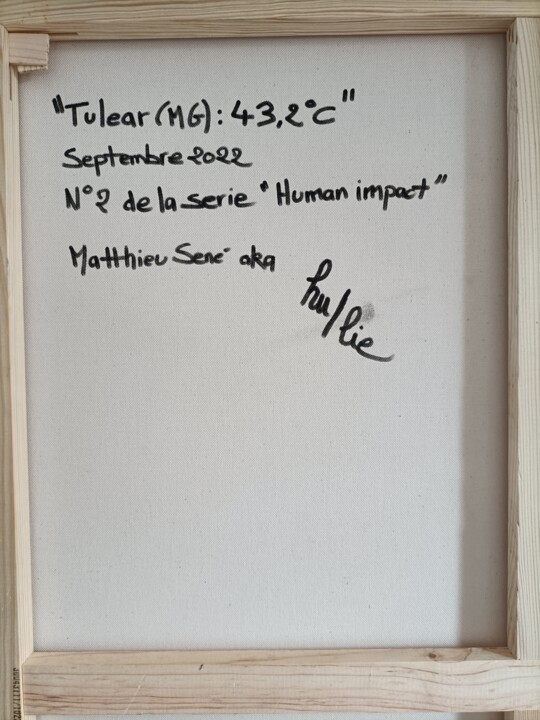 "Tulear (MG): 43,2°C"
Septembre 2022
N°2 de la serie "Human impact"
Matthieu Sené aka
hu/lie